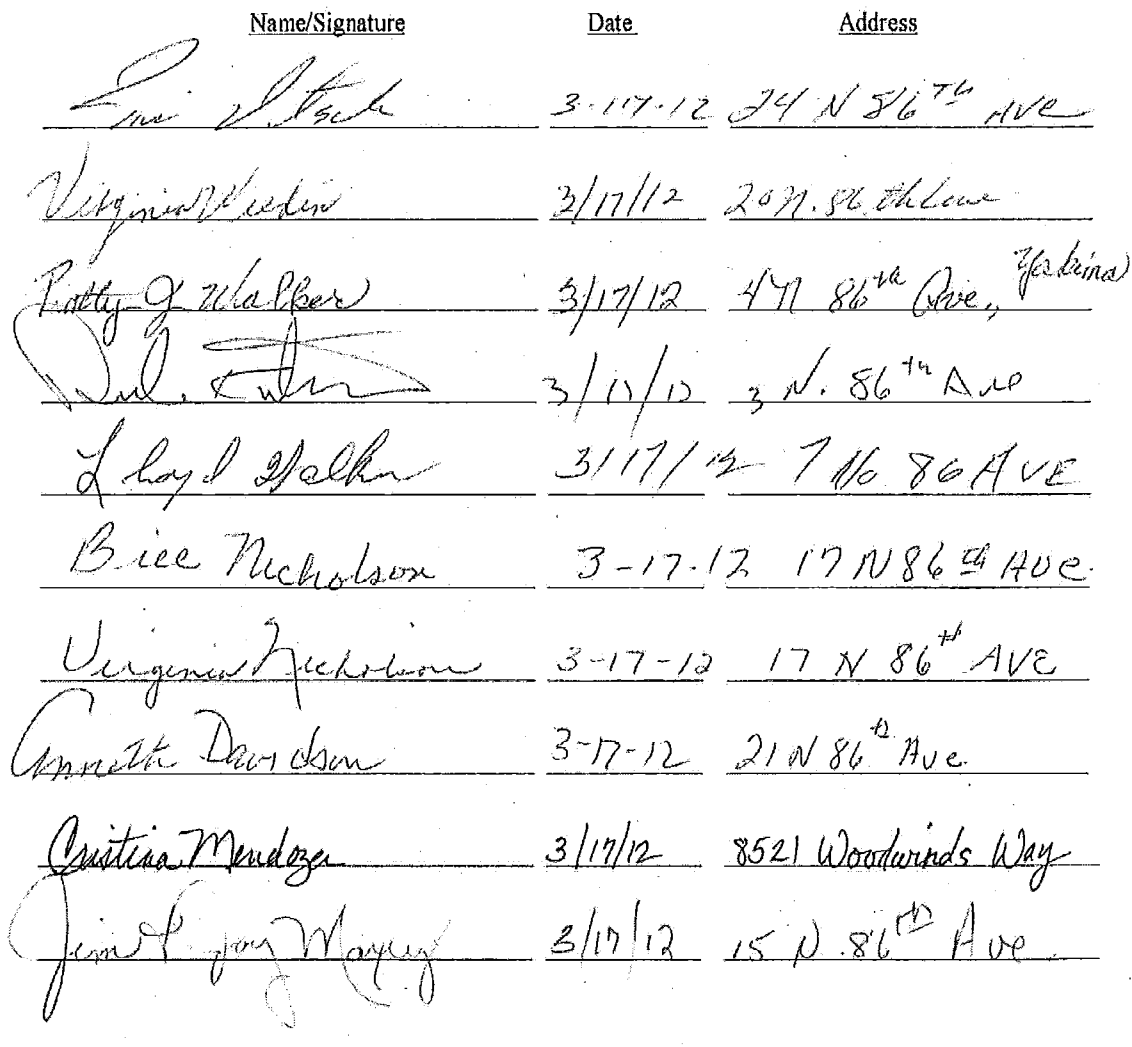 Name/Signature Date Address
3-17-12 24 N 86TH AVE
Virginia 3/17/12 20 N. 86th
Patty J Walker 3/17/12 4 N 86th Ave., Yakima
3/17/12 3 N. 86th Ave
Lloyd Walker 3/17/12 7 No 86 AVE
Bill Nicholson 3-17-12 17 N 86th Ave.
Virginia Nicholson 3-17-12 17 N 86th AVE
Annette Davidson 3-17-12 21 N 86th Ave
Cristina Mendoza 3/17/12 8521 Woodwinds Way
Jim & Joy Maxey 3/17/12 15 N. 86th Ave.